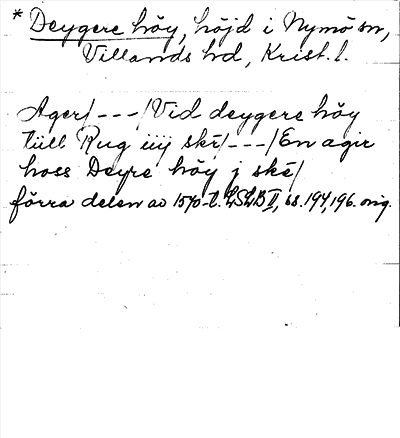 * Deygere höy, höjd i Nymö sn,
Villands hd, Krist. l.
Ager/---/Vid deygere höy
tüll Rug iiij ske/---/En agir
hoss Deyre höy j ske/
förra delen av 1570-t. LSLB II, s. 194, 196. orig.